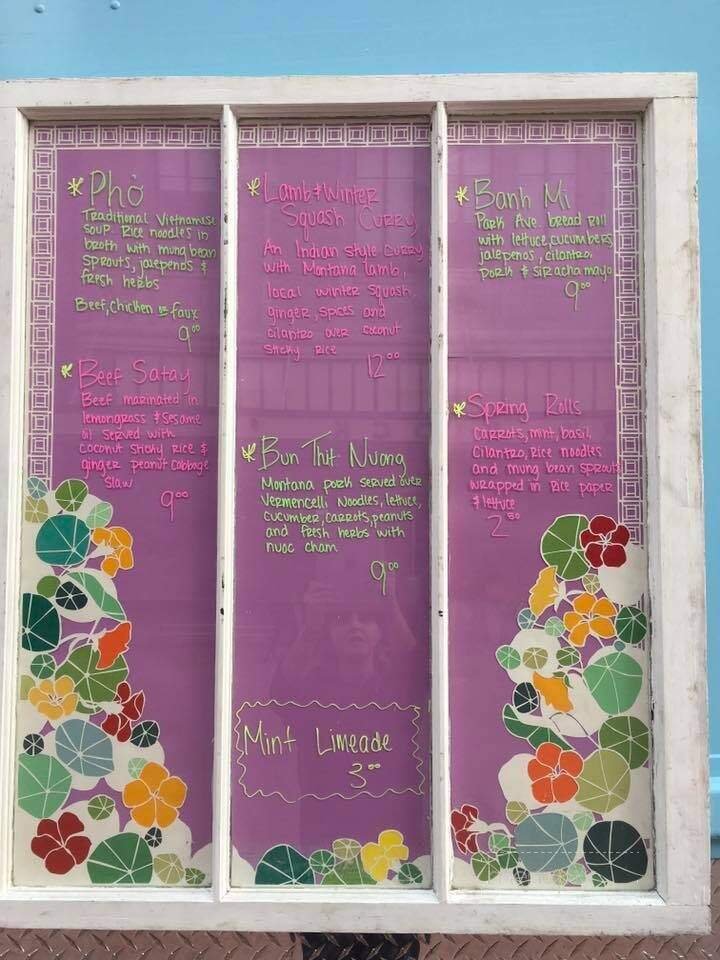 Phở
Traditional Vietnamese
soup. Rice noodles in
broth with mung bean
sprouts, jalepenos &
fresh herbs
Beef, Chicken or faux
9.00
Beef Satay
Beef marinated in
lemongrass & sesame
oil served with
coconut sticky rice &
ginger peanut cabbage
slaw
9.00
Lamb & Winter
Squash Curry
An Indian style curry
with Montana lamb,
local winter squash,
ginger, spices and
cilantro over coconut
sticky rice
12.00
Bun Thit Nuong
Montana pork served over
Vermencelli noodles, lettuce,
cucumber, carrots, peanuts
and fresh herbs with
nuoc cham
9.00
Mint Limeade
3.00
Banh Mi
Park Ave. bread roll
with lettuce, cucumbers,
jalepenos, cilantro,
pork & siracha mayo
9.00
Spring Rolls
carrots, mint, basil,
cilantro, rice noodles
and mung bean sprouts
wrapped in rice paper
& lettuce
2.50